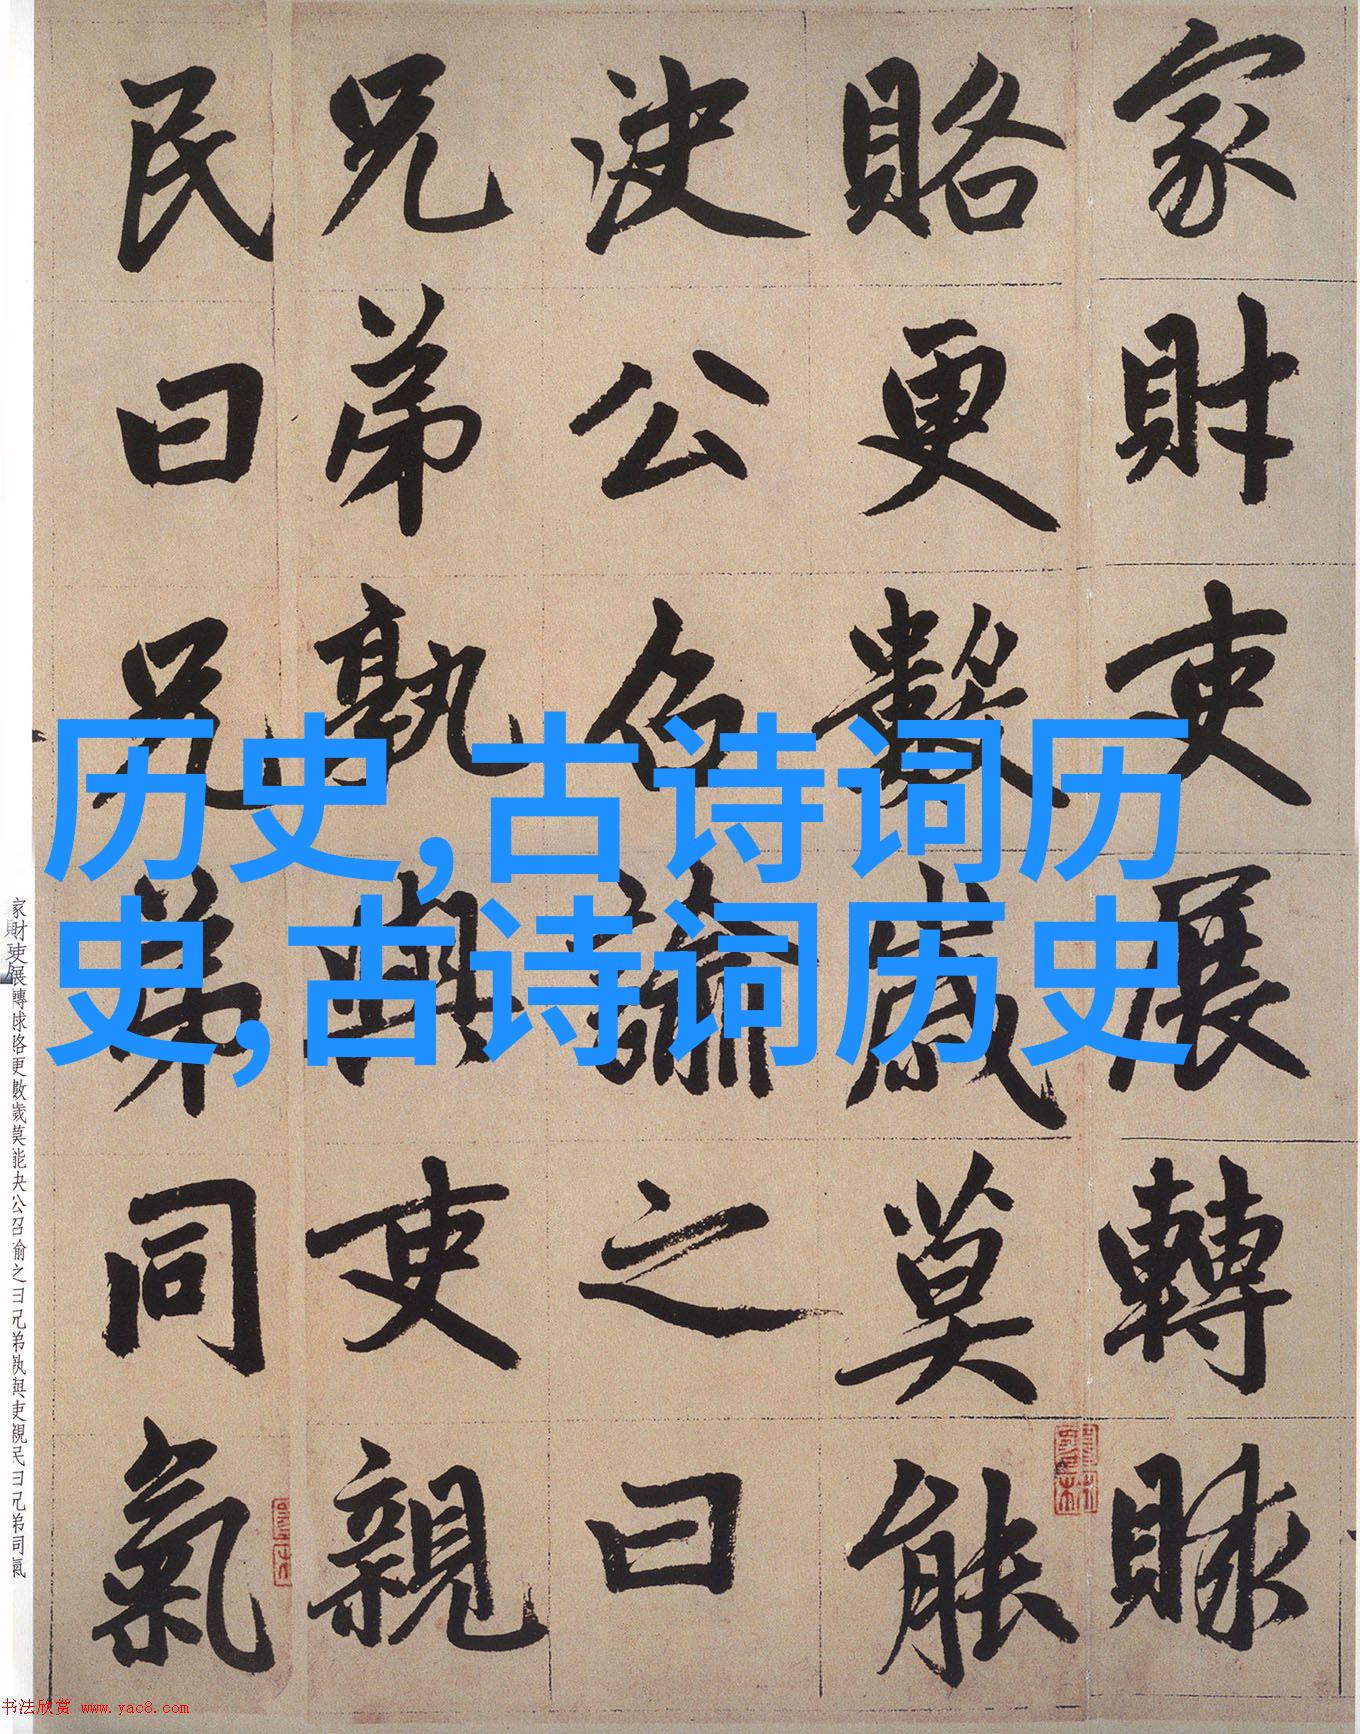 家財吏展轉賕
賂更數歲莫能
決公召諭之曰
兄弟孰與吏親
民曰兄弟同氣
历史,古诗词历
史,古诗词历史
家財吏展轉賕賂更數歲莫能决公召諭之曰兄弟孰與吏親民曰兄弟同氣
书法欣赏 www.yac8.com